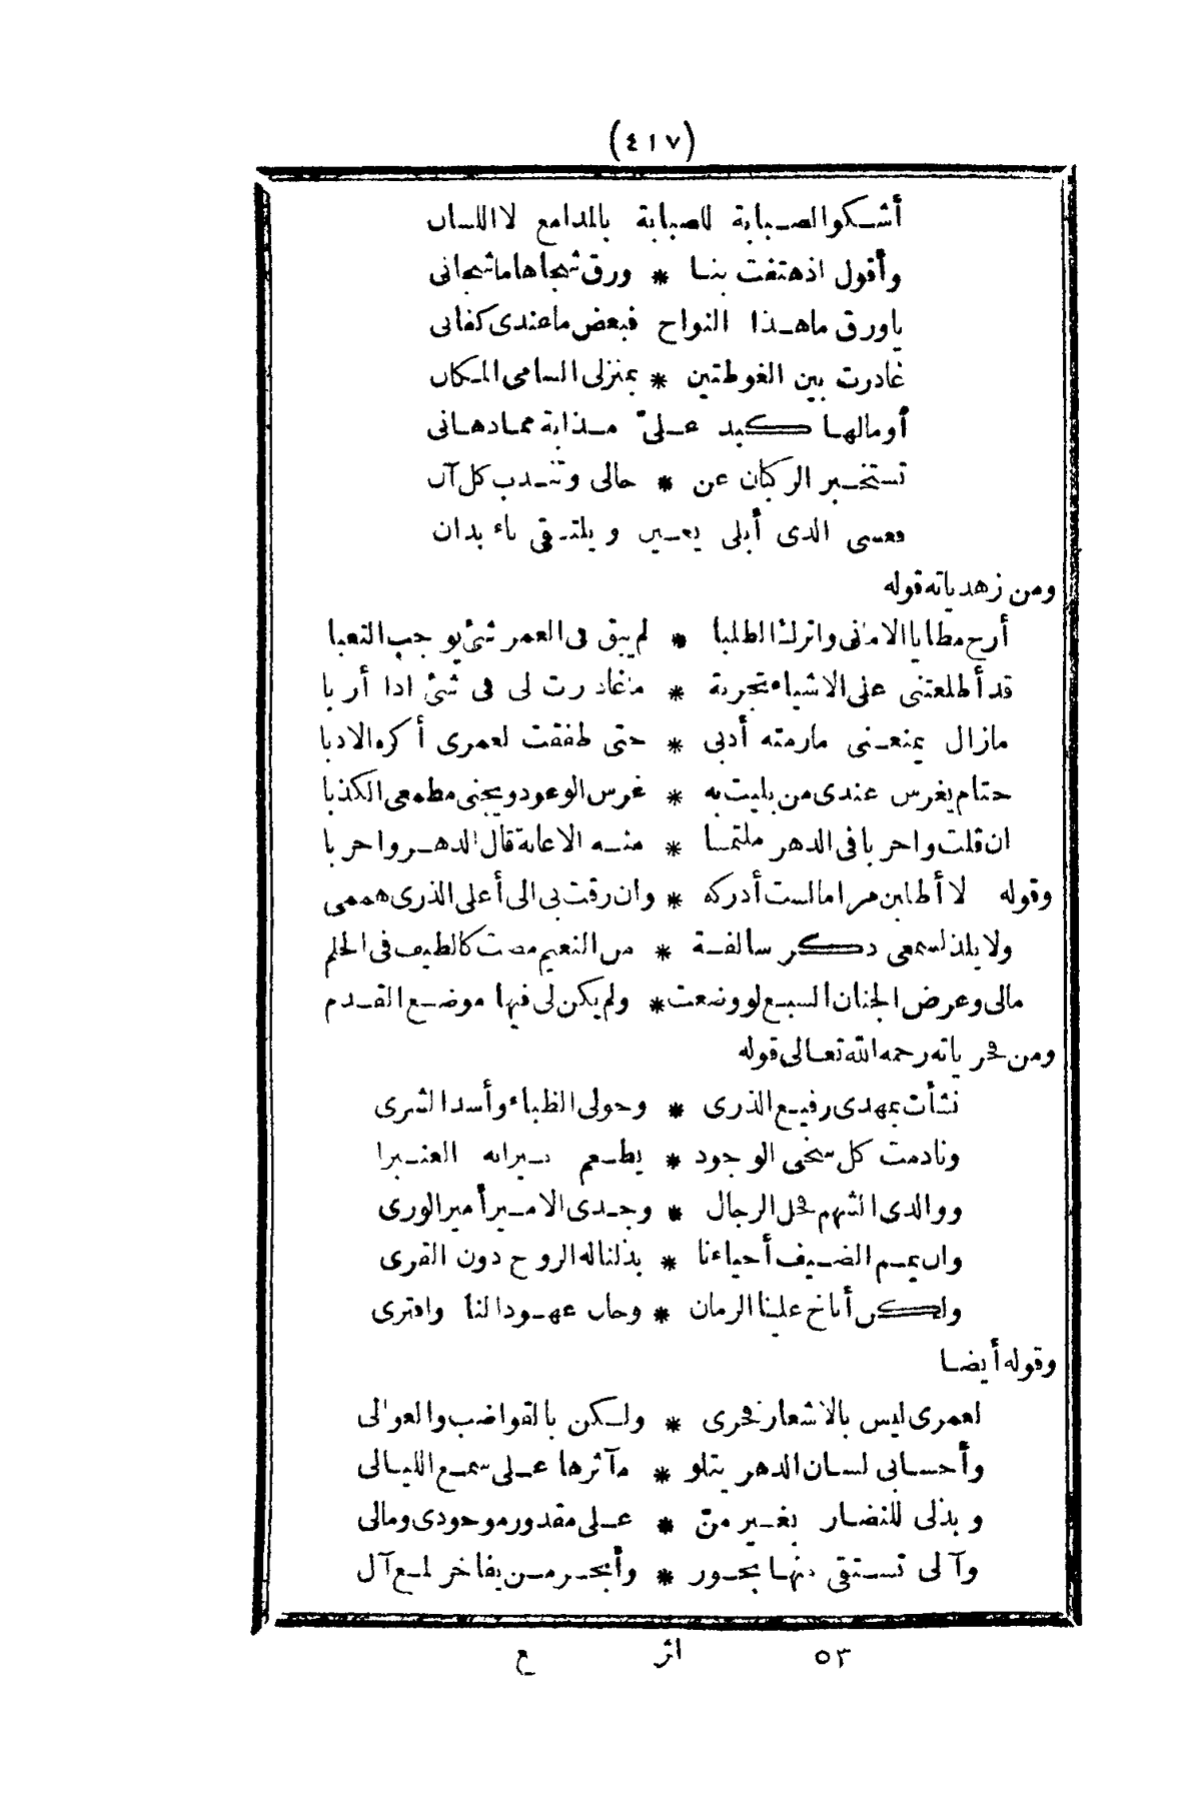 (٤١٧)
أشكو الصبابة للصبابة بالمدامع لا اللسان
وأقول اذ هتفت بنا * ورق شجاها ما شجانى
يا ورق ما هذا النواح فبعض ما عندى كفانى
غادرت بين الغوطتين * بمنزلى السامى المكان
أو ما لها كبد علىّ مذابة مما دهانى
تستخبر الركبان عن * حالى وتندب كل آن
فعسى الذى أبلى يعين ويلتقى ناء بدان
ومن زهدياته قوله
أرح مطايا الامانى واترك الطلبا * لم يبق فى العمر شئ يوجب التعبا
قد أطلعتنى على الاشياء تجربة * ما غادرت لى فى شئ اذا أربا
مازال يمنعنى ما رمته أدبى * حتى طفقت لعمرى أكره الادبا
حتام يغرس عندى من بليت به * غرس الوعود ويجنى مطمعى الكذبا
ان قلت واحربا فى الدهر ملتمسا * منه الاعانة قال الدهر واحربا
وقوله لا أطلبن مراما لست أدركه * وان رقت بى الى أعلى الذرى هممى
ولا يلذ لسمعى ذكر سالفة * من النعيم مضت كالطيف فى الحلم
مالى وعرض الجنان السبع لو وضعت * ولم يكن لى فيها موضع القدم
ومن فخرياته رحمه الله تعالى قوله
نشأت بمهدى رفيع الذرى * وحولى الظباء وأسد الشرى
ونادمت كل سخى الوجود * يطعم نيرانه العنبرا
ووالدى الشهم فحل الرجال * وجدى الامير أمير الورى
وان يمم الضيف أحياءنا * بذلنا له الروح دون القرى
ولكن أناخ علينا الزمان * وخان عهودا لنا وافترى
وقوله أيضا
لعمرى ليس بالاشعار فخرى * ولكن بالقواضب والعوالى
وأحسابى لسان الدهر يتلو * مآثرها على سمع الليالى
وبذلى للنضار بغير منّ * على مقدور موجودى ومالى
وآلى تستقى منها بحور * وأبحر من يفاخر لمع آل
٥٣ اثر ع